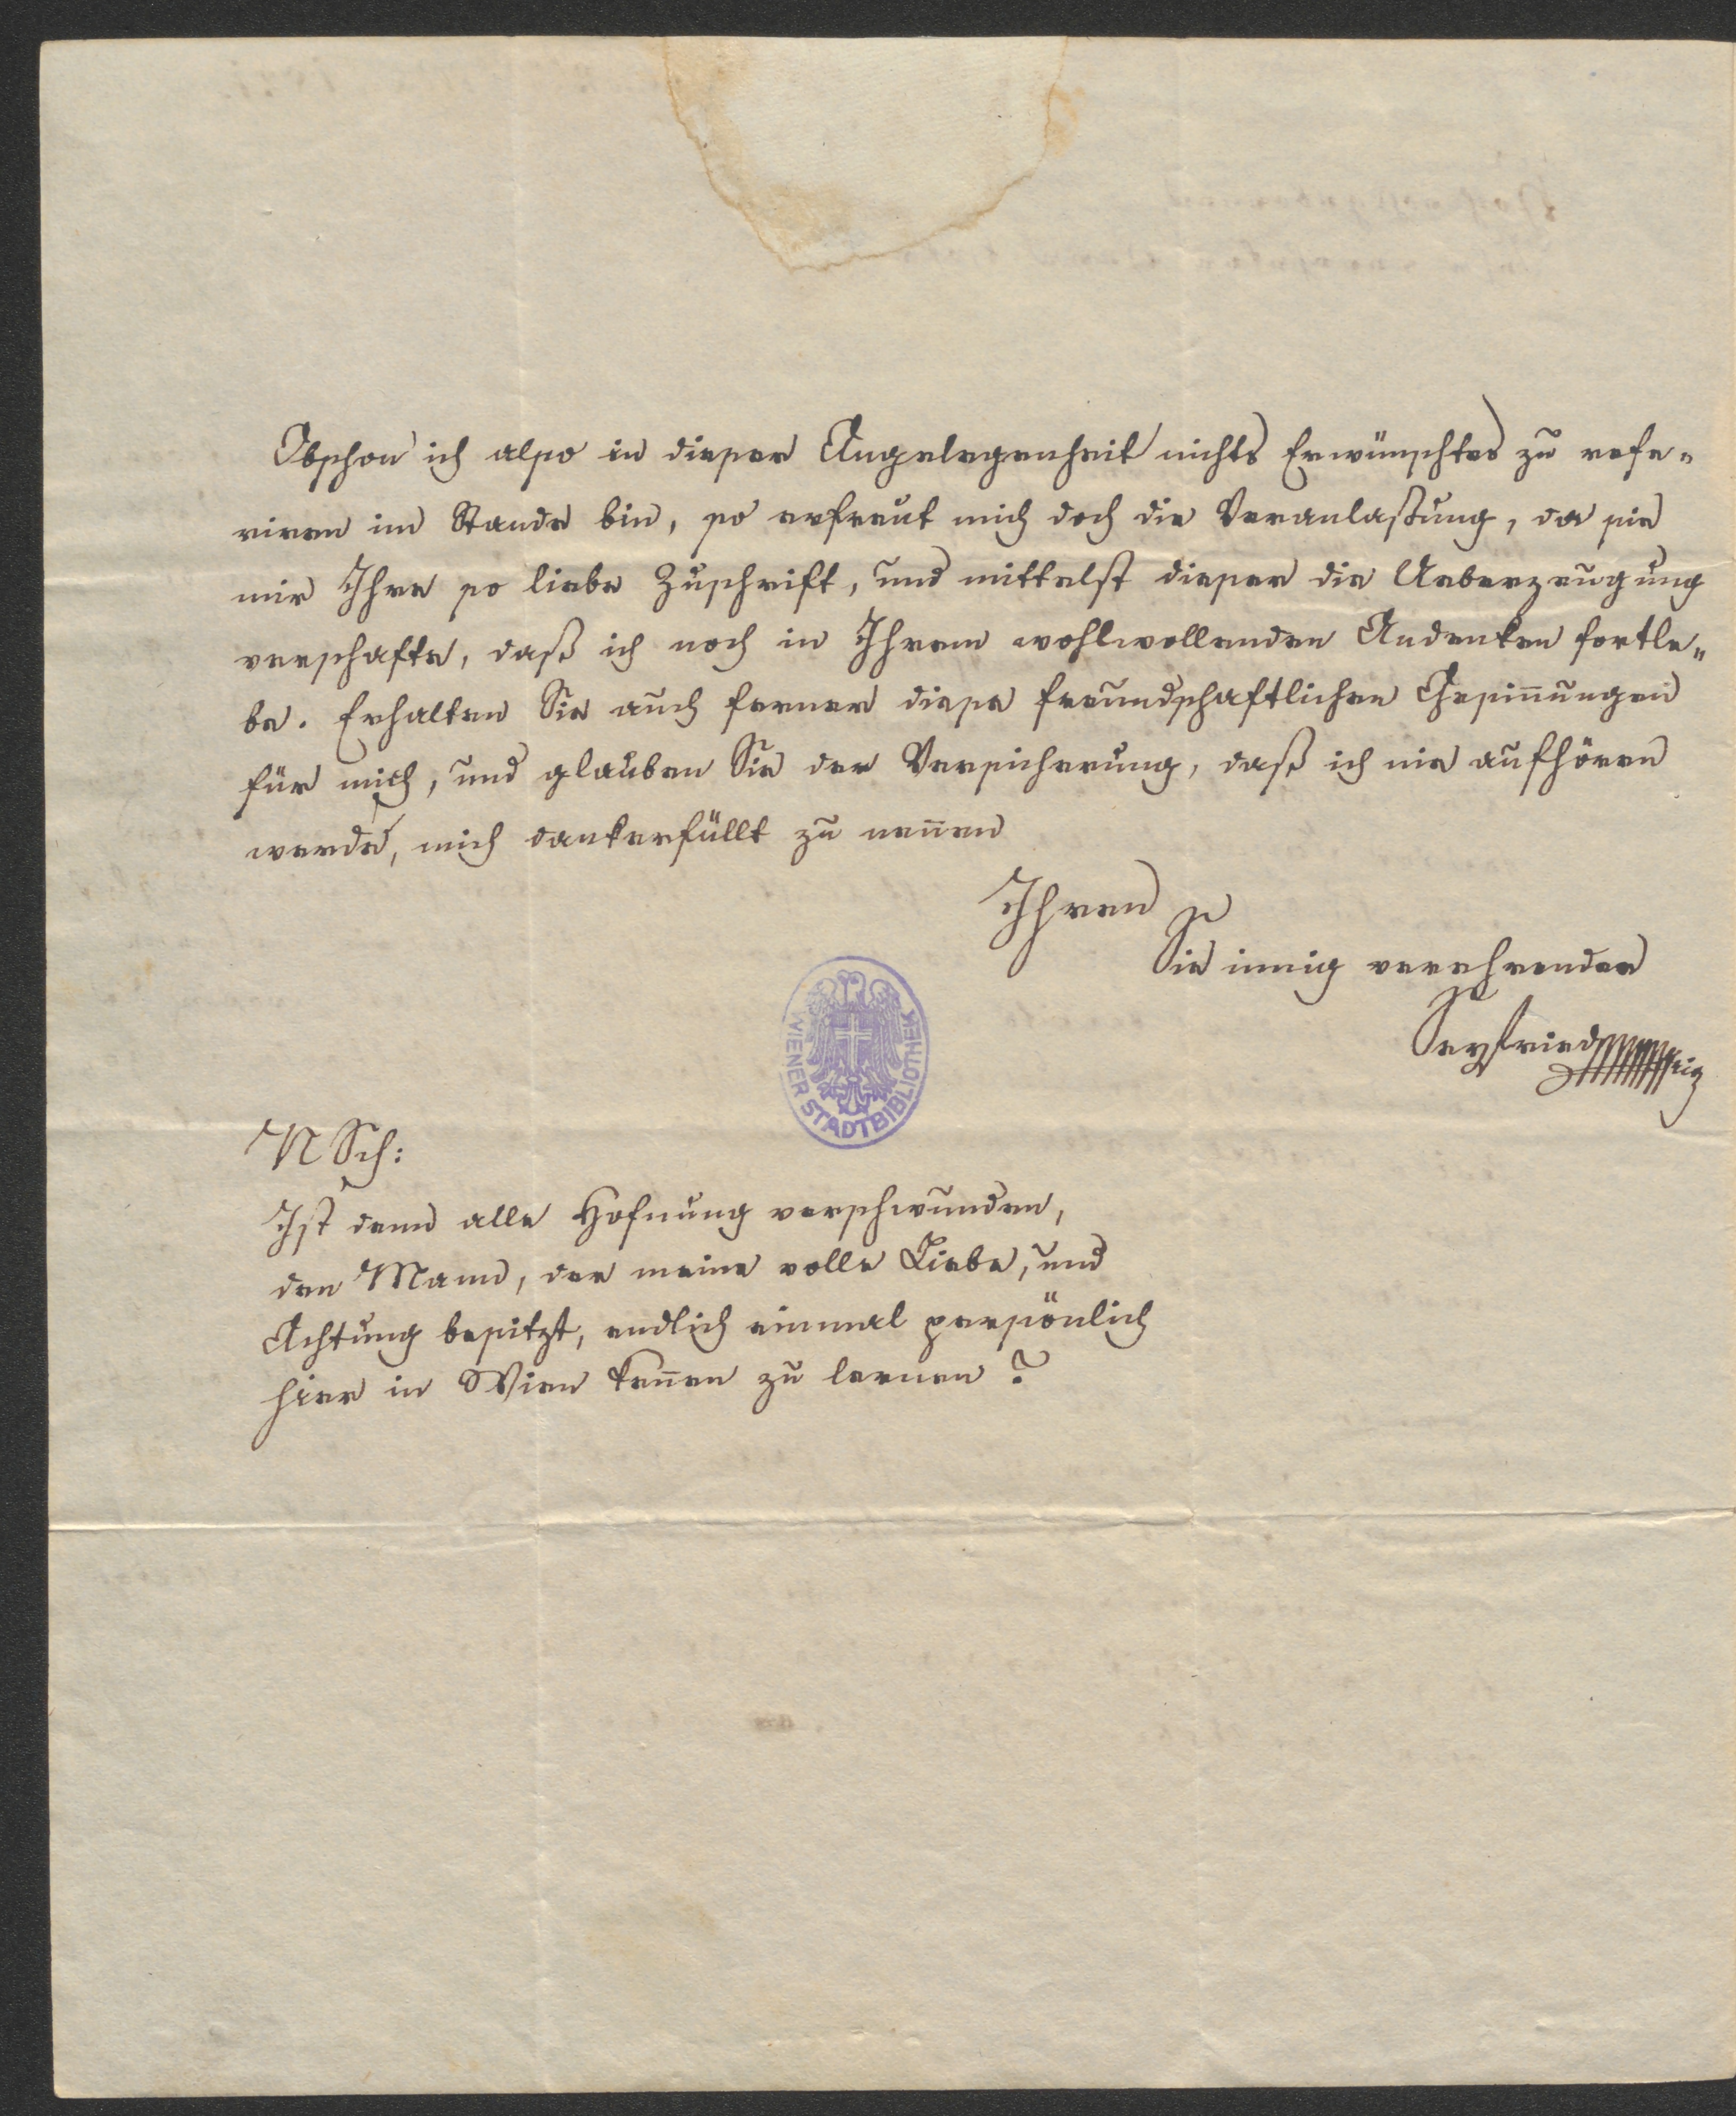 Obschon ich also in dieser Angelegenheit nichts Erwünschtes zu refe=
riren im Stande bin, so erfreut mich doch die Veranlaßung, da sie
mir Ihre so liebe Zuschrift, und mittelst dieser die Ueberzeugung
verschafte, daß ich noch in Ihrem wohlwollenden Andenken fortle=
be. Erhalten Sie auch ferner diese freundschaftlichen Gesin̄ungen
für mich, und glauben Sie der Versicherung, daß ich nie aufhören
werde, mich dankerfüllt zu nen̄en
Ihren
Sie innig verehrenden
Seyfried
WIENER STADTBIBLIOTHEK
N Sch:
Ist denn alle Hofnung verschwunden,
den Mann, der meine volle Liebe, und
Achtung besitzt, endlich einmal persönlich
hier in Wien ken̄en zu lernen?